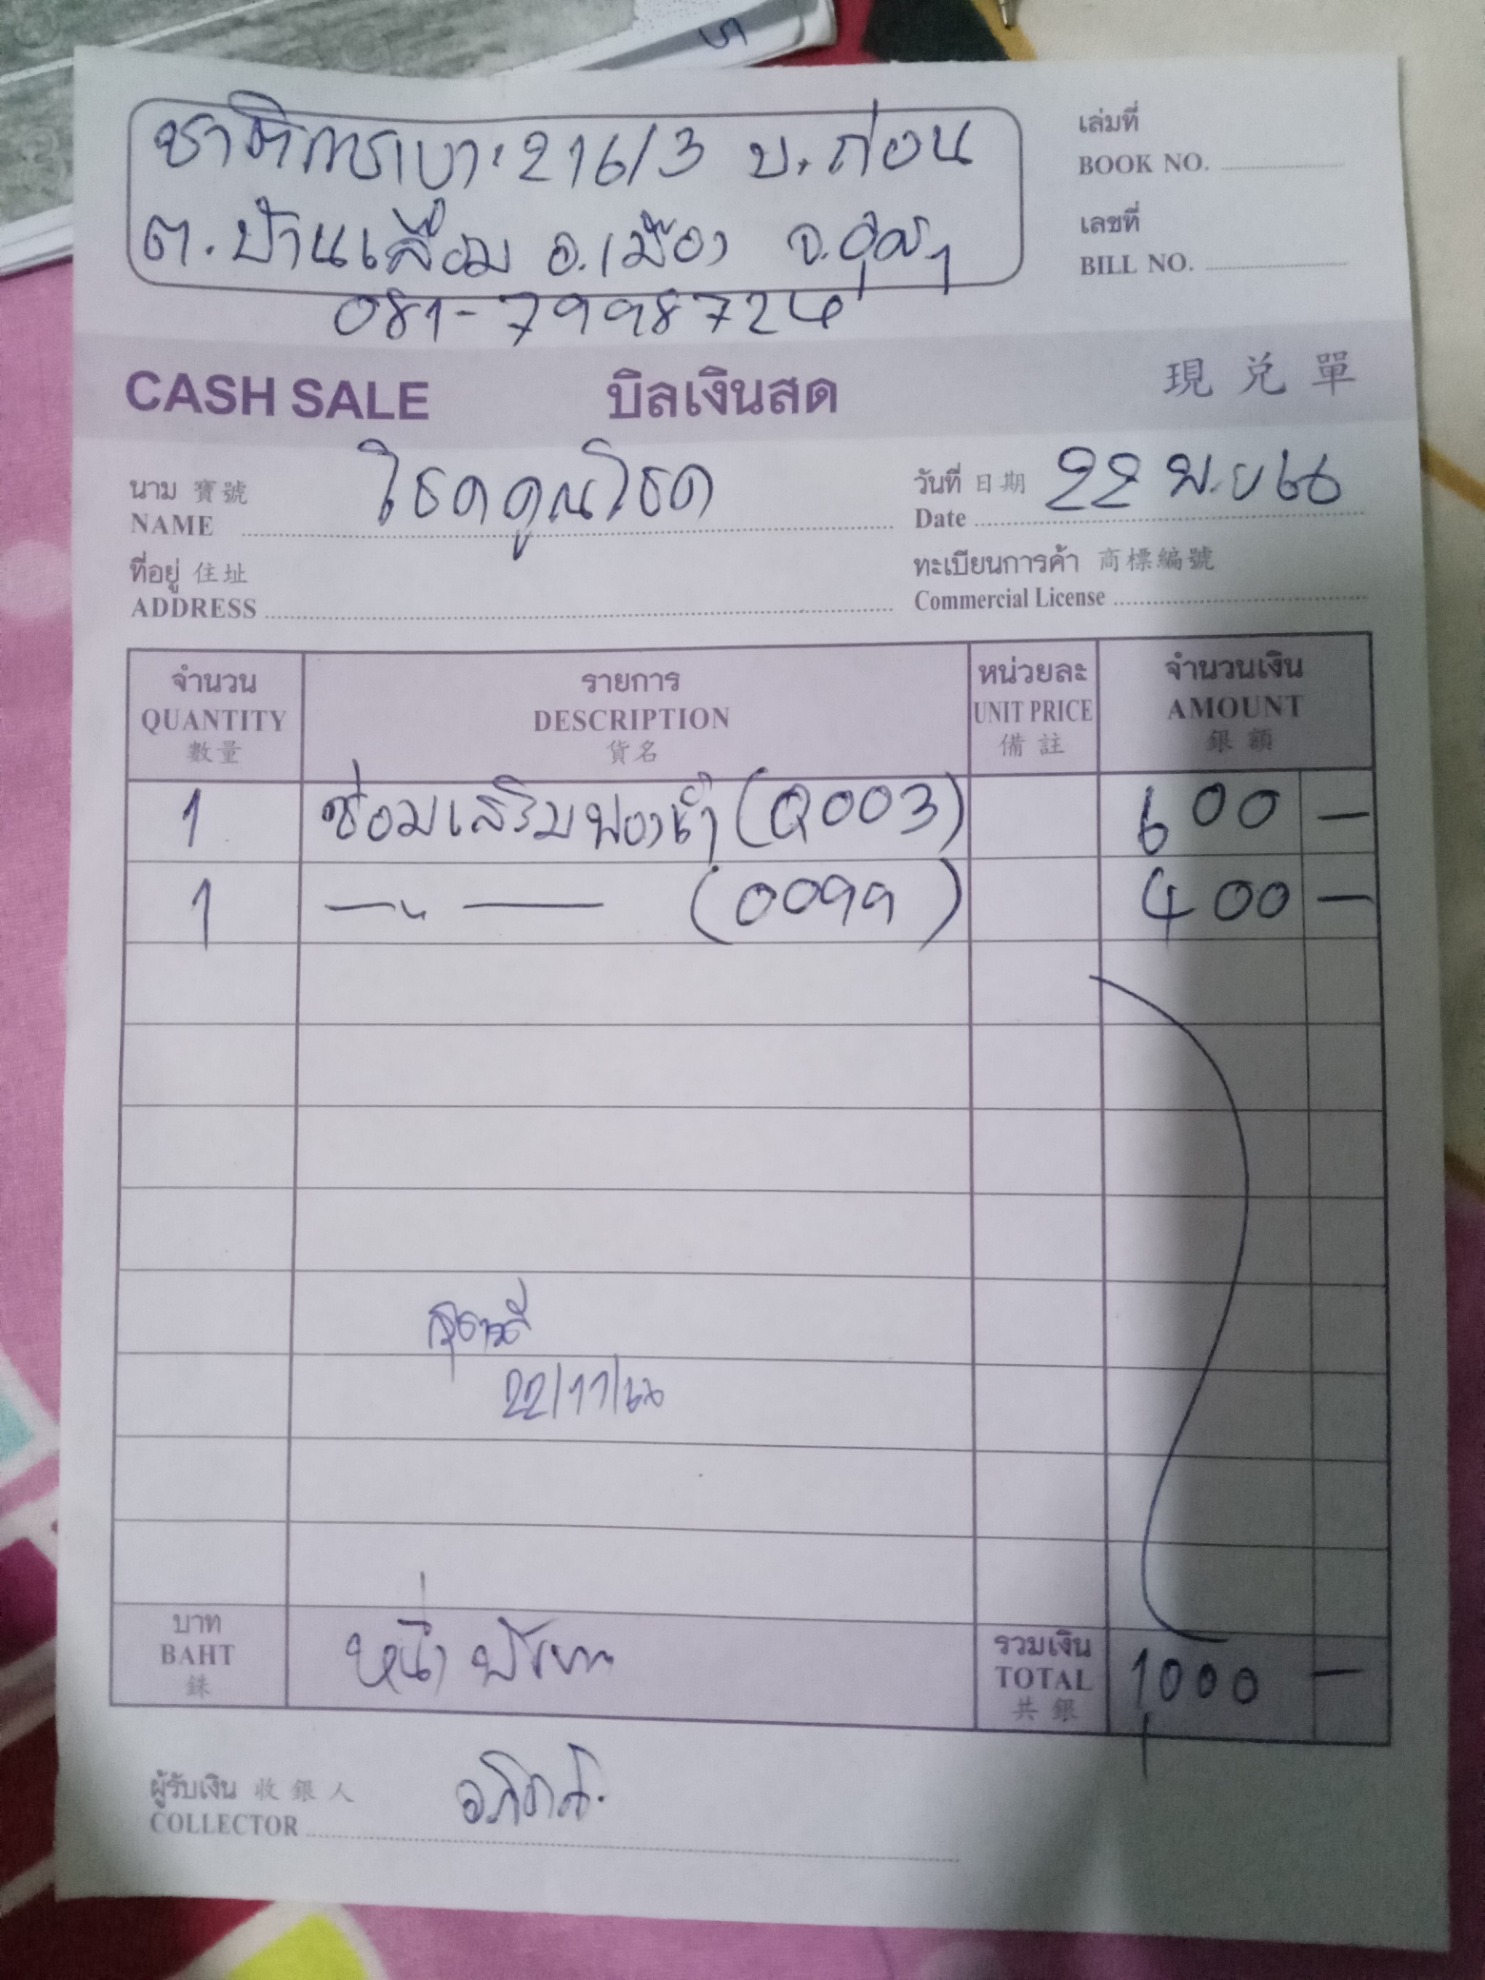 ชาติการเบาะ 216/3 บ.ก่อน
ต.บ้านเลื่อม อ.เมือง จ.อุดรฯ
081-7998724
เล่มที่
BOOK NO.
เลขที่
BILL NO.
CASH SALE บิลเงินสด 現兌單
นาม 寶號
NAME โชคคูณโชค
วันที่ 日期
Date 22 พ.ย 66
ที่อยู่ 住址
ADDRESS
ทะเบียนการค้า 商標編號
Commercial License
จำนวน รายการ หน่วยละ จำนวนเงิน
QUANTITY DESCRIPTION UNIT PRICE AMOUNT
數量 貨名 備註 銀額
1 ซ่อมเสริมฟองน้ำ (Q003) 600 —
1 —〃— (0099) 400 —
22/11/66
บาท
BAHT หนึ่งพันบาท
銖
รวมเงิน
TOTAL 1000 —
共銀
ผู้รับเงิน 收銀人
COLLECTOR